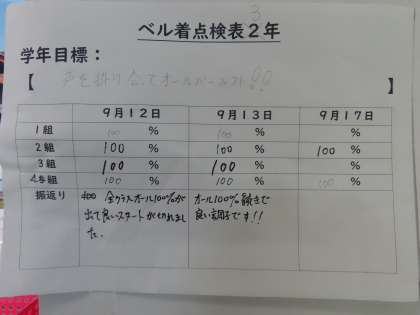 3
ベル着点検表２年
学年目標：
【声を掛け合ってオールパーフェクト!!】
９月１２日 ９月１３日 ９月１７日
１組 100 % 100 % %
２組 100 % 100 % 100 %
３組 100 % 100 % %
４組 100 % 100 % 100 %
振返り 全クラスオール100%が オール100%続きで
出て良いスタートがきれまし 良い調子です!!
た。